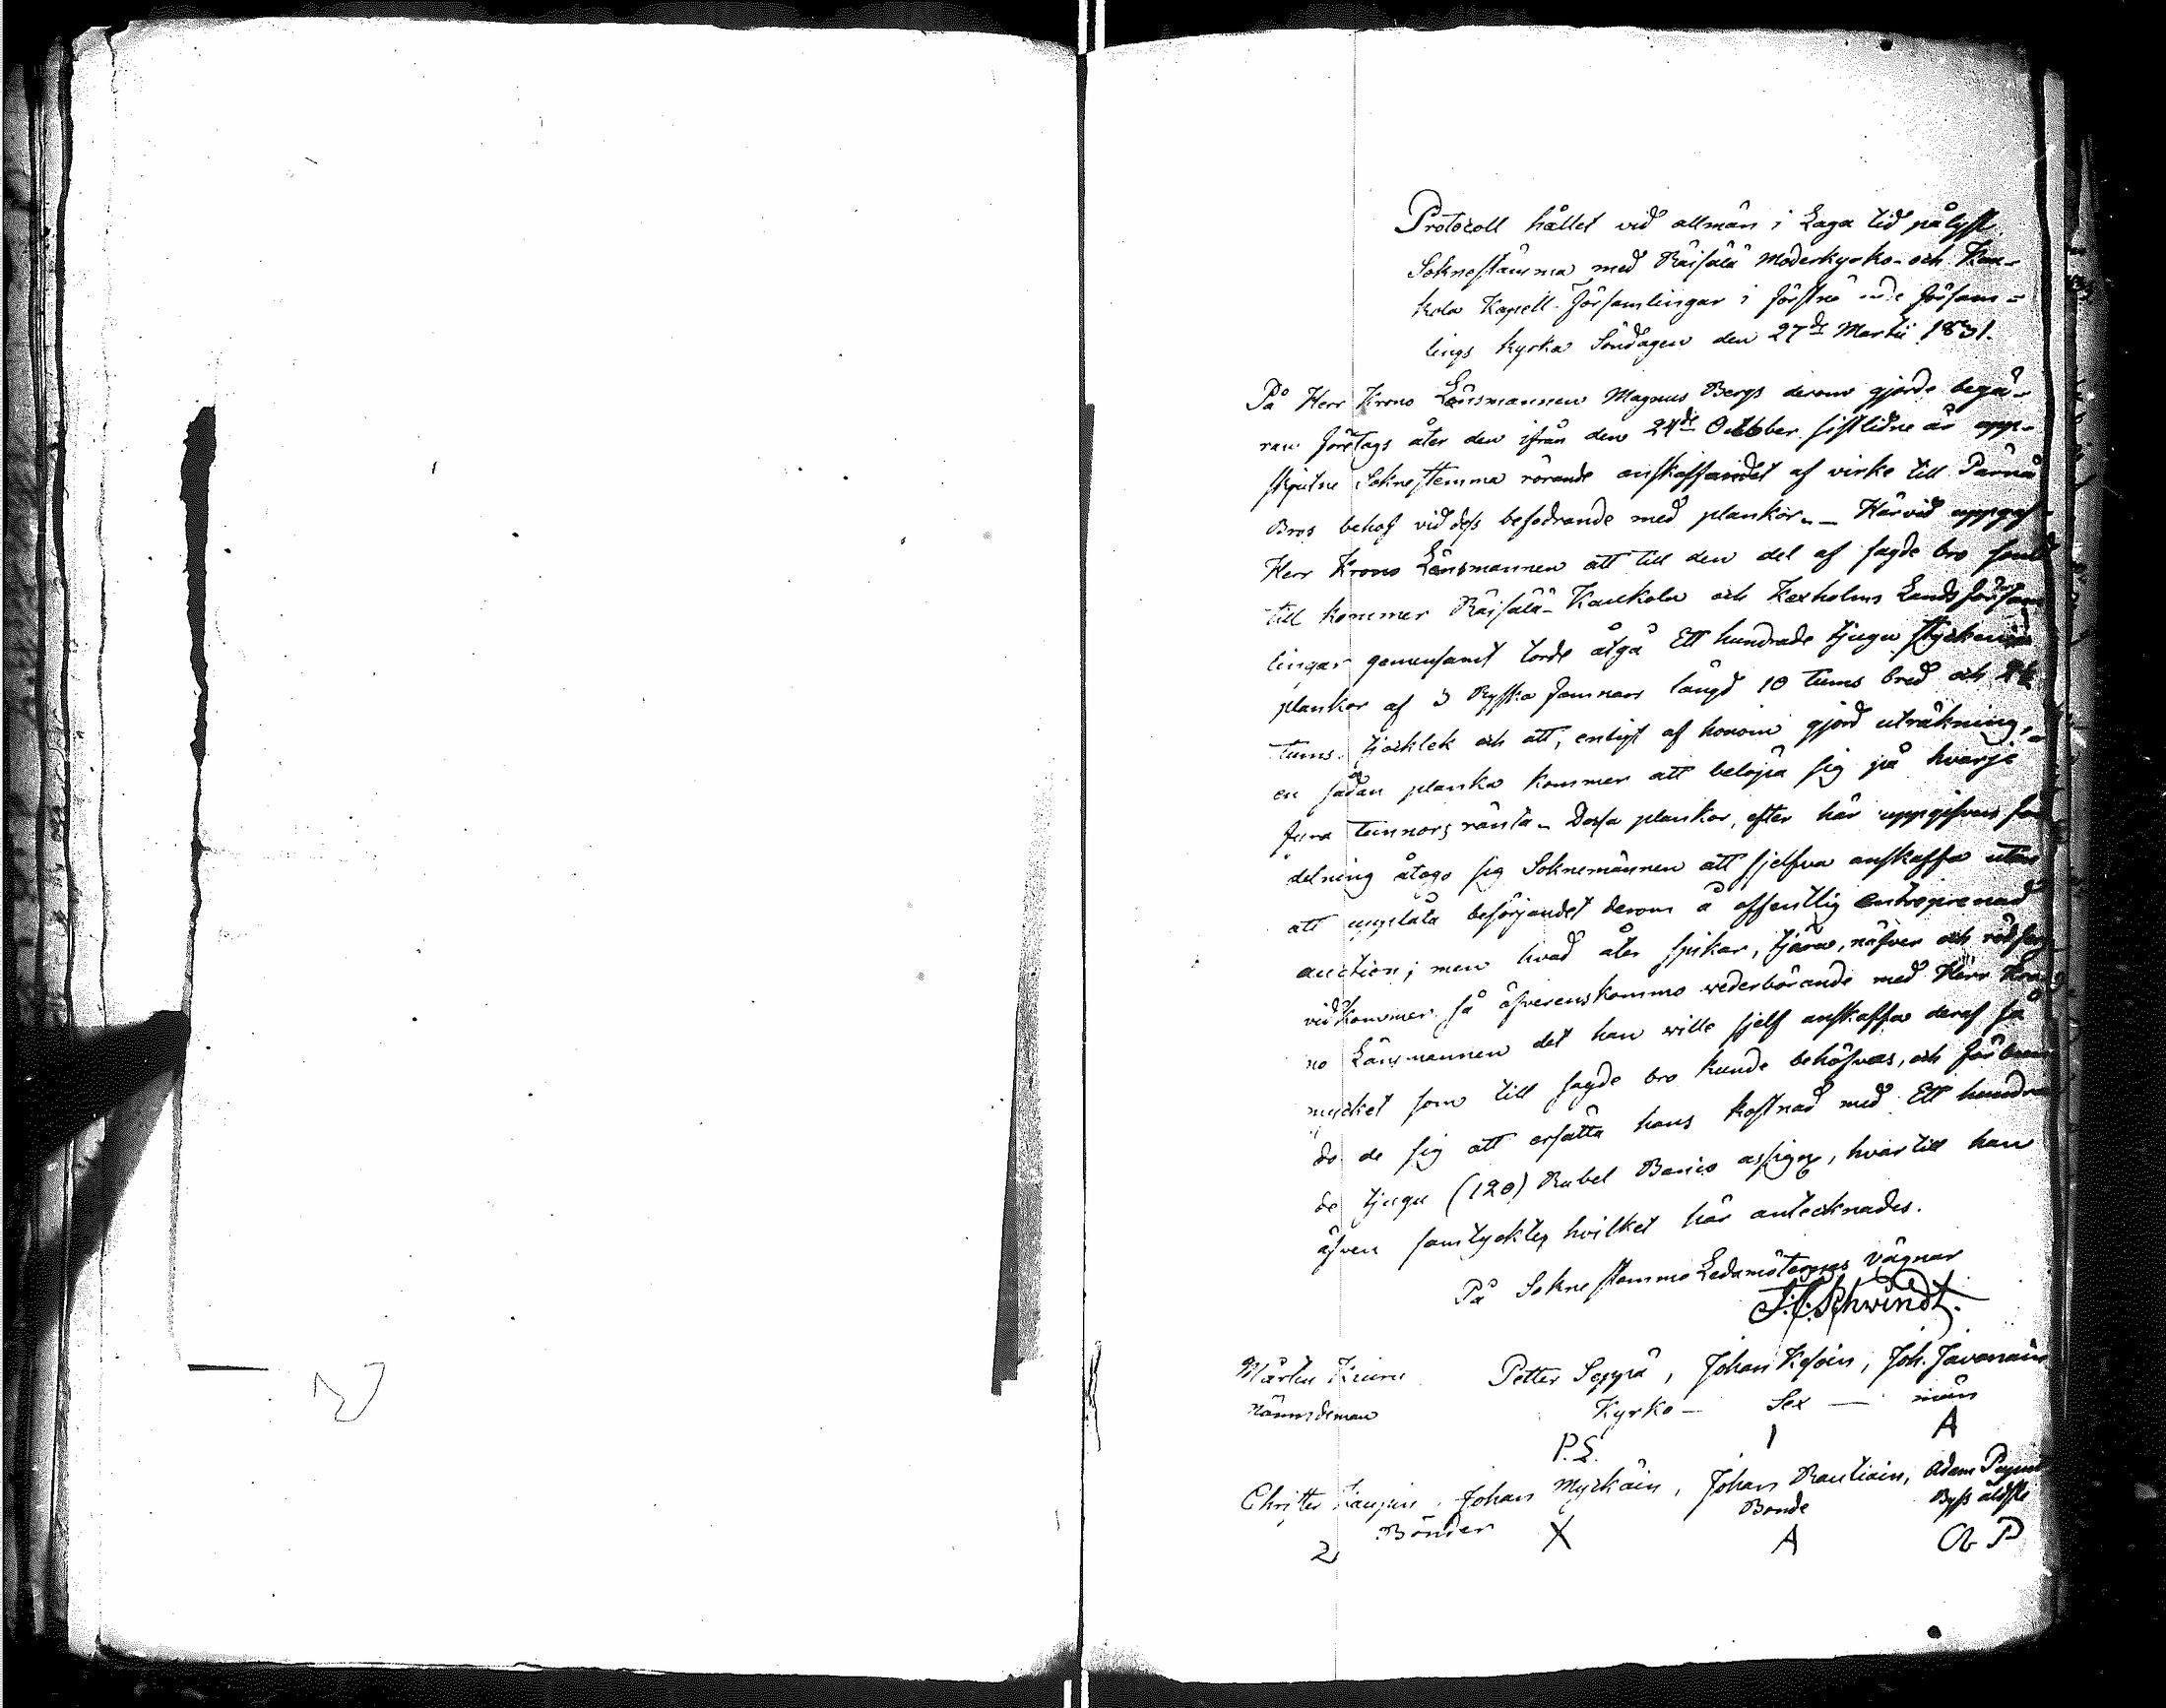 Protocoll hållet vid allmän i Laga tid pålyst
Soknestämma med Räisälä Moderkyrko- och Kau-
kola Kapell-Församlingar i förstnämnde Försam-
lings kyrka Söndagen den 27de Martii 1831.
På Herr Krono Länsmannen Magnus Bergs derom gjorde begä-
ran företags åter den ifrån den 24de October sistlidne år upp-
skjutne Sokne stemma rörande anskaffandet af virke till Pärnä
Bros behof vid dess befodrande med plankor. - Härvid uppgaf
Herr Krono Länsmannen att till den del af sagde bro som
till kommer Räisälä- Kaukola och Kexholms Lands försam
lingar gemensamt torde åtgå Ett hundrade tjugu stycken
plankor af 3 Ryska famnars längd 10 tums bred och
tums tjocklek och att, enligt af honom gjord uträkning,
en sådan planka kommer att belöpa sig på hvarje
fyra tunnors ränta. Dessa plankor, efter här uppgifven för
delning åtogo sig Soknemännen att sjelfva anskaffa utan
att upplåta besörjandet derom å offentlig entreprenad
auction; men hvad åter spikar, tjära, näfver och rödfärg
vidkommer så öfverenskommo wederbörande med Herr Kro
no Länsmannen det han wille sjelf anskaffa deraf så
mycket som till sagde bro kunde behöfvas, och förbun
do de sig att ersätta hans kostnad med Ett hundra
de tjugu (120) Rubel Banco assigne, hvartill han
äfven samtyckte, hvilket här antecknades.
På Sokne stämmo Ledamöternes vägnar
J. C. Schwindt.
Mårten Petter Seppä, Johan, Joh. Javanain
Nämndeman Kyrko - Sex - män
P.S. I A
Christer Johan Myckäin, Johan Rautiain, Adam
Bönder Bonde Bys äldste
2 X A P